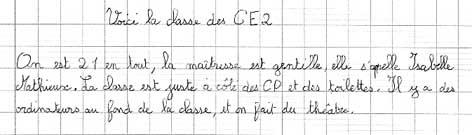 Voici la classe des CE2
On est 21 en tout, la maîtresse est gentille, elle s'apelle Isabelle
Mathieux. La classe est juste à côté des CP et des toilettes. Il y a des
ordinateurs au fond de la classe, et on fait du théâtre.